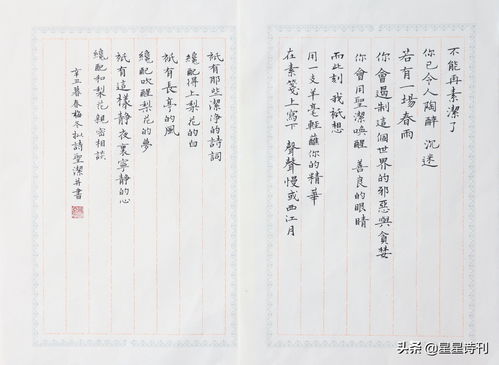 不能再素潔了
你已令人陶醉 沉迷
若有一場春雨
你會遏制這個世界的邪惡與貪婪
你會用聖潔喚醒 善良的眼睛
而此刻 我祇想
用一支羊毫輕蘸你的精華
在素箋上寫下 聲聲慢或西江月
祇有那些潔淨的詩詞
纔配得上梨花的白
祇有長亭的風
纔配吹醒梨花的夢
祇有這樣靜夜裏寧靜的心
纔配和梨花親密相談
辛丑暮春梅冬拟詩聖潔并書
头条 @星星诗刊